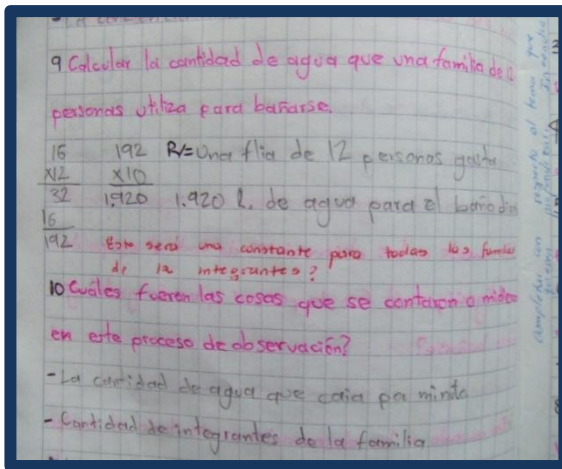 9 Calcular la cantidad de agua que una familia de
personas utiliza para bañarse.
16 192 R/= Una flia de 12 personas gasta
x12 x10
32 1.920 1.920 L. de agua para el baño
16
192 Esto será una constante para todas las
de 12 integrantes?
10 Cuáles fueron las cosas que se contaron o
en este proceso de observación?
- La cantidad de agua que caia por minuto
- Cantidad de integrantes de la familia